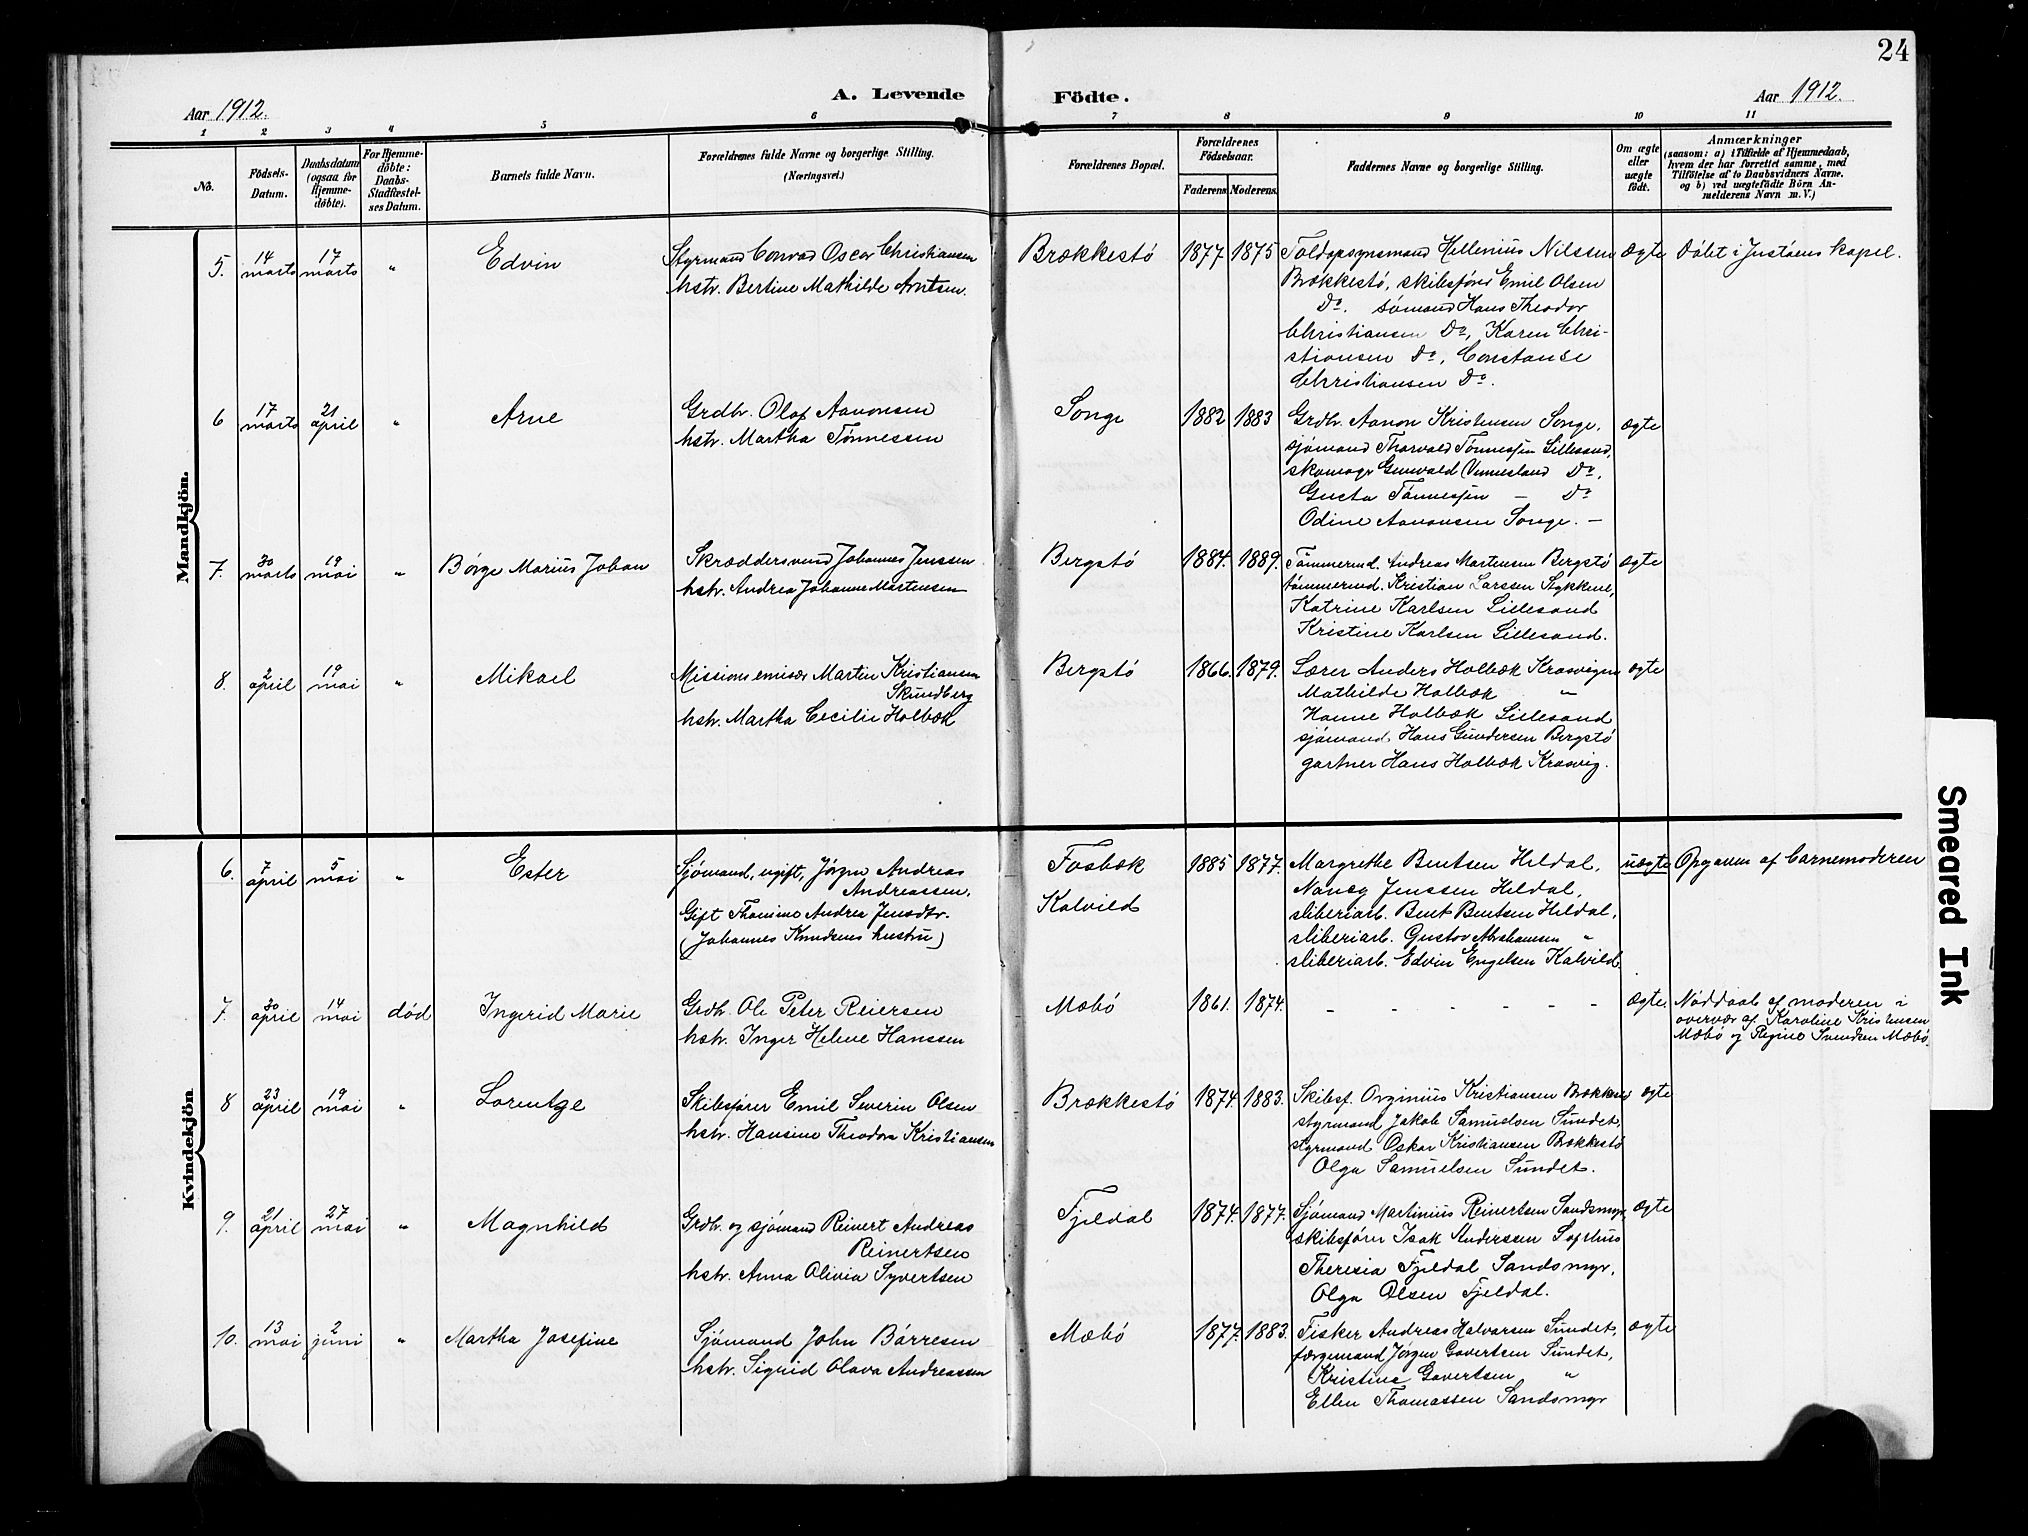 24
A. Levende Födte.
Aar 1912.
Aar 1912.
1 2 3 4 5 6 7 8 9 10 11
No.
Födsels-
Datum.
Daabsdatum
(ogsaa for
Hjemme-
döbte).
For Hjemme-
döbte:
Daabs-
Stadfæstel-
ses Datum.
Barnets fulde Navn.
Forældrenes fulde Navne og borgerlige Stilling.
(Næringsvei.)
Forældrenes Bopæl.
Forældrenes
Födselsaar.
Faderens.
Moderens.
Faddernes Navne og borgerlige Stilling.
Om ægte
eller
uægte
födt.
Anmærkninger
(saasom: a) i Tilfælde af Hjemmedaab,
hvem der har forrettet samme, med
Tilföielse af to Daabsvidners Navne.
og b) ved uægtefödte Börn An-
melderens Navn m. V.)
Mandkjön.
5. 14 marts 17 marts " Edvin
Styrmand Conrad Oscar Christiansen
hstr. Bertine Mathilde Arntsen.
Brækkestö 1877 1875
Toldopsynsmand Hellenius Nilssen
Brækkestö, skibsförer Emil Olsen
Do. sömand Hans Theodor
Christiansen Do, Karen Chri-
stiansen Do, Constanse
Christiansen Do.
ægte
Döbt i Justöens kapel.
6 17 marts 21 april " Arne
Grdbr. Olaf Aanonsen
hstr. Martha Tönnessen
Songe 1882 1883
Grdbr. Aanon Kristensen Songe,
sjömand Thorvald Tönnessen Lillesand,
skomagr Gunvald Vennesland Do,
Gusta Tönnessen - Do
Odine Aanonsen Songe. -
ægte
7. 30 marts 19 mai " Börge Marius Johan
Skræddersvend Johannes Jenssen
hstr. Andrea Johanne Martensen
Bergstö 1884. 1889.
Tömmermd. Andreas Martensen Bergstö
tömmermd. Kristian Larssen Stykkene,
Katrine Karlsen Lillesand
Kristine Karlsen Lillesand.
ægte
8. 2 april 19 mai " Mikael
Missionsemisær Martin Kristiansen
Skundberg
hstr. Martha Cecilie Holbæk
Bergstö 1866. 1879.
Lærer Anders Holbæk Krosvigen
Mathilde Holbæk "
Hanne Holbæk Lillesand
sjömand. Hans Gundersen Bergstö
gartner Hans Holbæk Krosvig.
ægte
Kvindekjön
6. 7 april 5 mai " Ester
Sjömand, ugift, Jörgen Andreas
Andreassen,
Gift Thomine Andrea Jensdtr.
(Johannes Knudsens hustru)
Fosbæk
Kalvild
1885 1877.
Margrethe Bentsen Heldal,
Nancy Jenssen Heldal,
sliberiarb. Bent Bentsen Heldal,
sliberiarb. Gustav Abrahamsen "
sliberiarb. Edvin Engelsen Kalvild
uægte
Opgaven af barnemoderen
7. 30 april 14 mai död Ingerid Marie
Grdb. Ole Peter Reiersen
hstr. Inger Helene Hanssen
Mæbö 1861. 1874.
- - - - - -
ægte.
Nöddaab af moderen i
overvær af Karoline Kristensen
Mæbö og Regine Svendsen Mæbö.
8 23 april 19 mai " Lorentze
Skibsförer Emil Severin Olsen
hstr. Hansine Theodora Kristiansen
Brækkestö 1874. 1883.
Skibsf. Orginius Kristiansen Brækkes
styrmand Jakob Samuelsen Sundet,
styrmand Oskar Kristiansen Brækkestö
Olga Samuelsen Sundet.
ægte
9. 21 april 27 mai " Magnhild
Grdbr. og sjömand Reinert Andreas
Reinertsen
hstr. Anna Olivia Syvertsen
Fjeldal 1874. 1877.
Sjömand Martinius Reinertsen Sandsmyr,
skibsförer Isak Anderssen
Theresia Fjeldal Sandsmyr,
Olga Olsen Fjeldal.
ægte
10. 13 mai 2 juni " Martha Josefine
Sjömand John Börresen
hstr. Sigrid Olava Andreassen
Mæbö 1877. 1883.
Fisker Andreas Halvorsen Sundet,
færgemand Jörgen Govertsen Sundet,
Kristine Govertsen "
Ellen Thomassen Sandsmyr
ægte
Smeared Ink